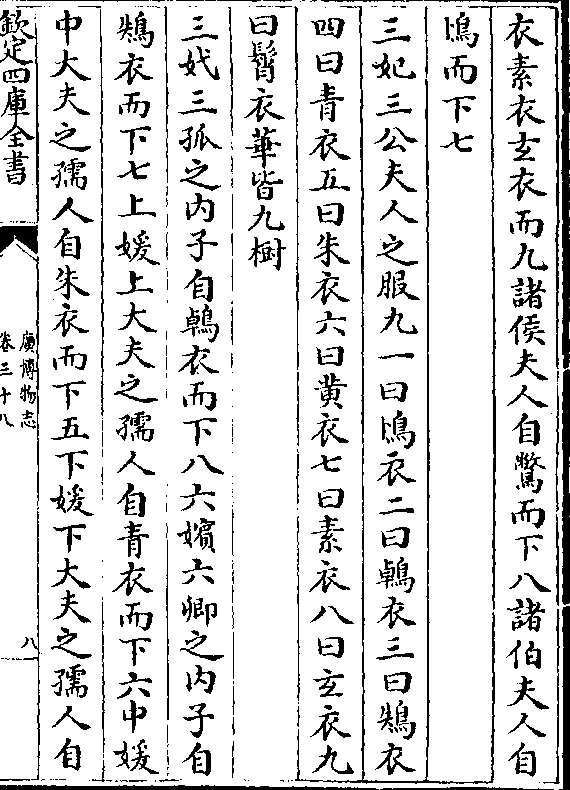 衣素衣玄衣而九諸侯夫人自鷩而下八諸伯夫人自
鳪而下七
三妃三公夫人之服九一曰鳪衣二曰鵫衣三曰鵊衣
四曰青衣五曰朱衣六曰黄衣七曰素衣八曰玄衣九
曰髾衣華皆九樹
三㚤三孤之内子自鵫衣而下八六嬪六卿之内子自
鵊衣而下七上媛上大夫之孺人自青衣而下六中媛
中大夫之孺人自朱衣而下五下媛下大夫之孺人自
欽定四庫全書
廣博物志
卷三十八
八